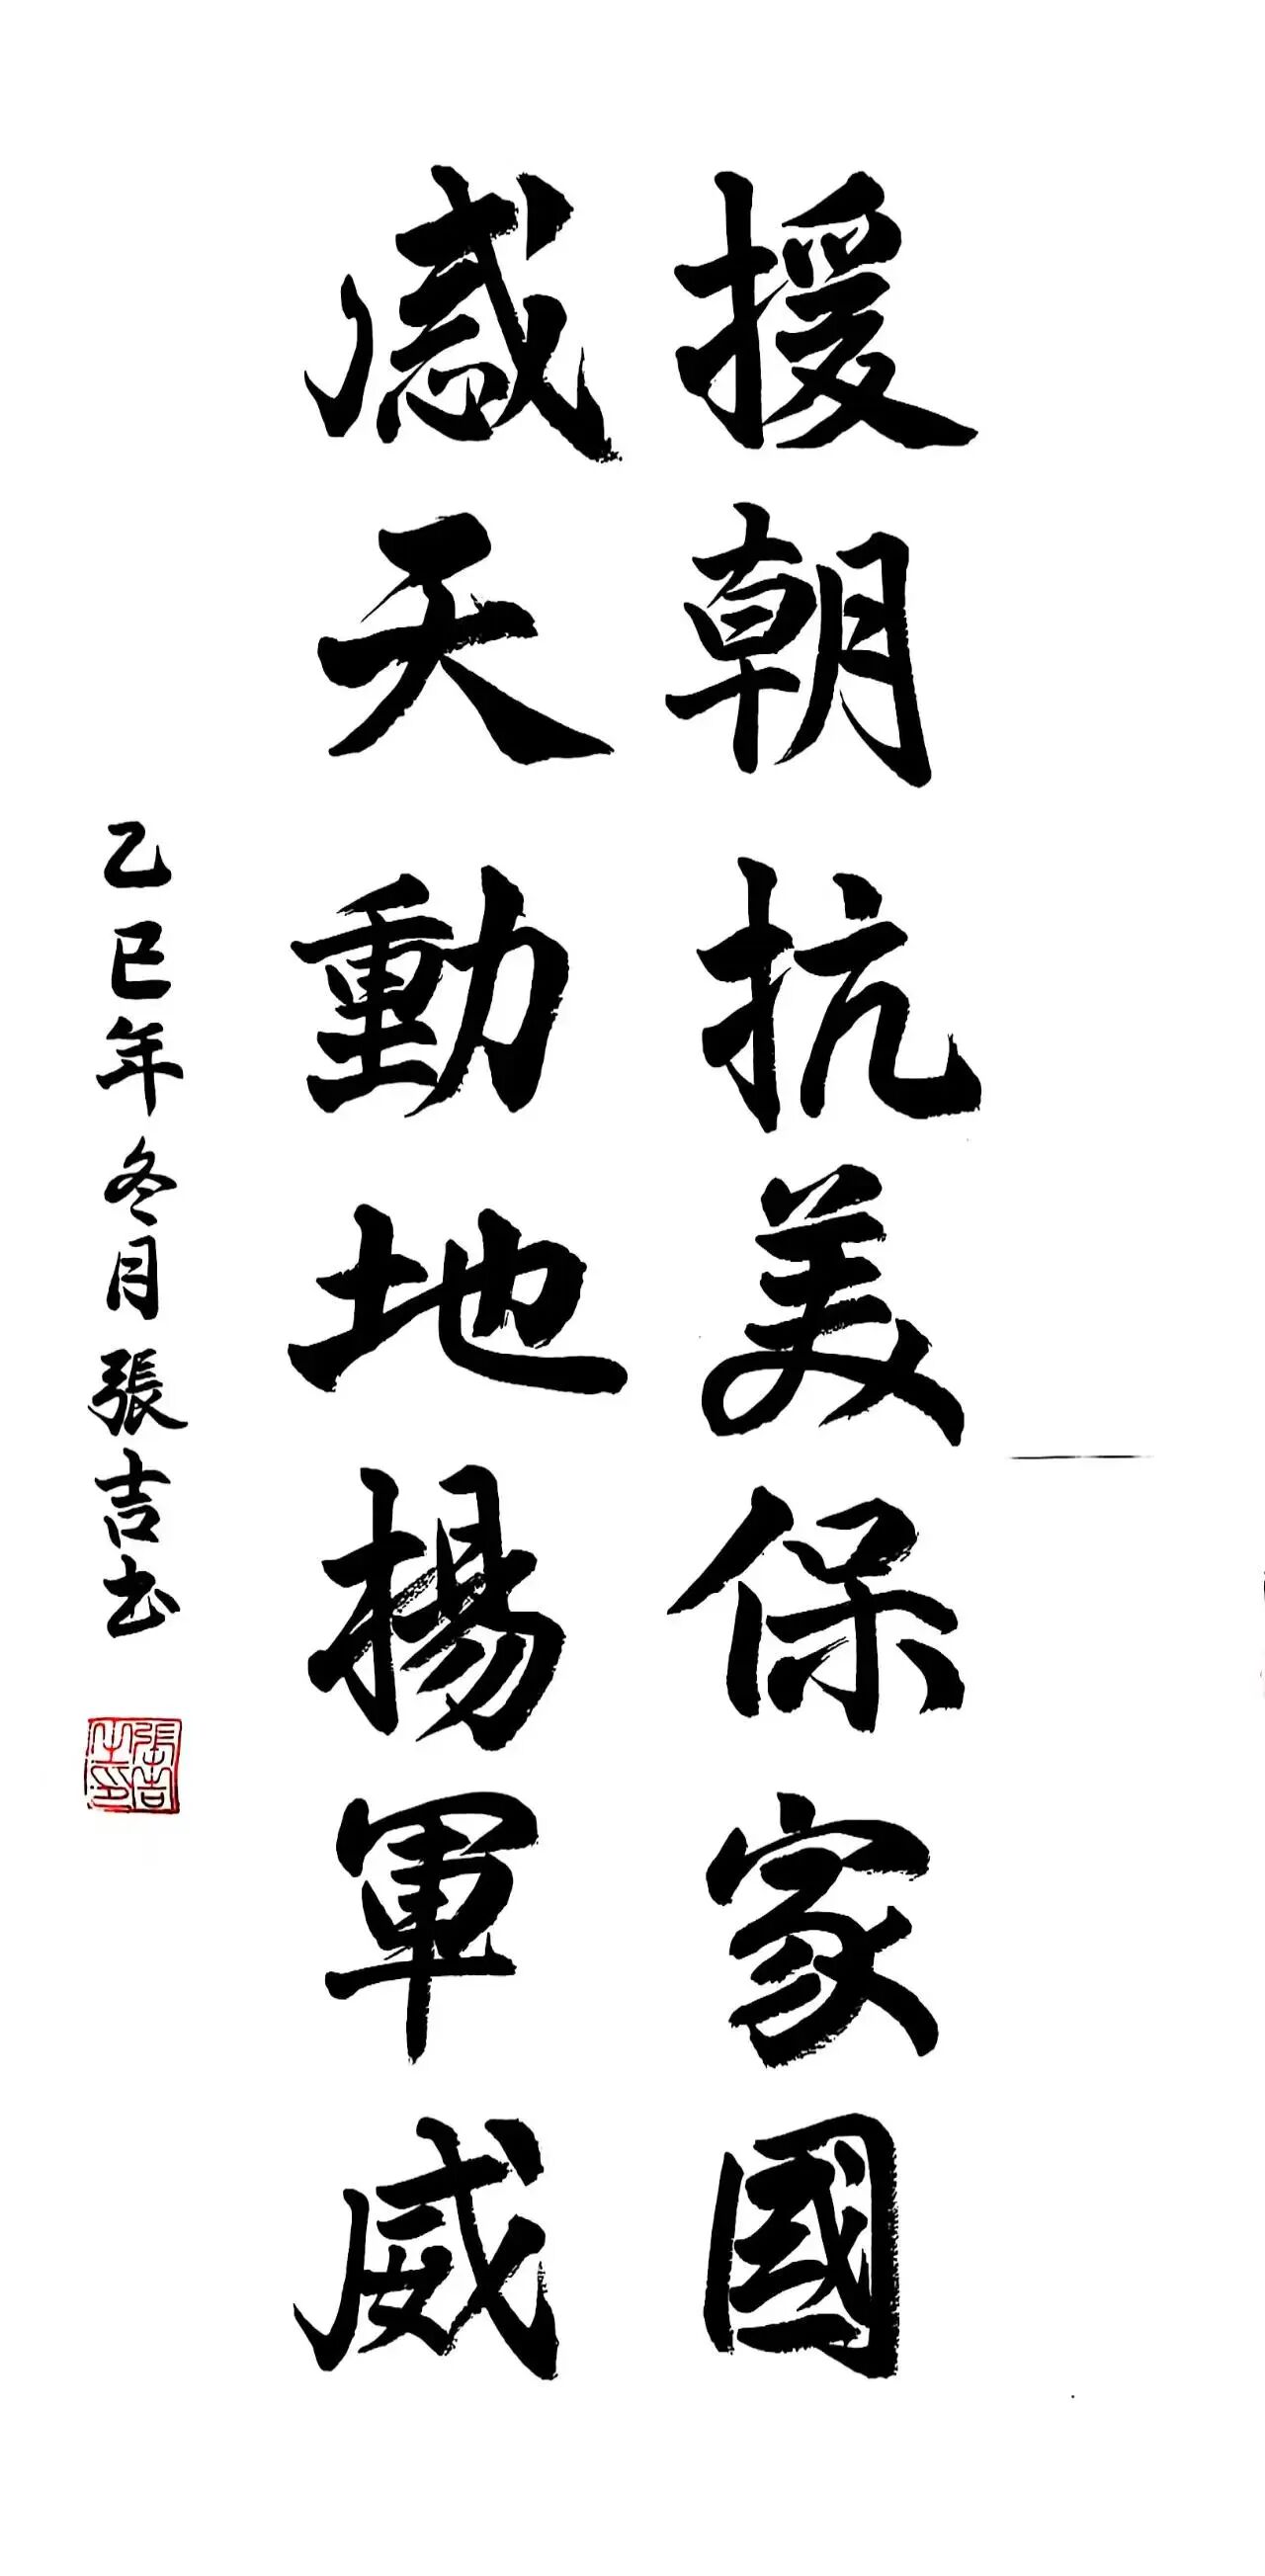 援朝抗美保家國
感天動地揚軍威
乙巳年冬月張吉书
張吉之印